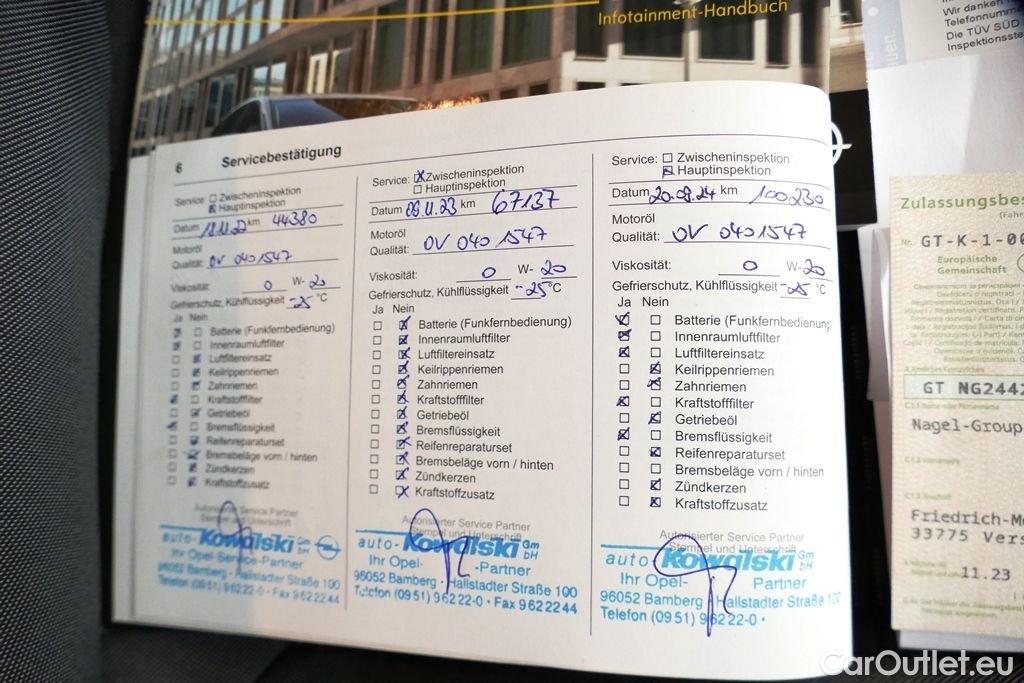 Infotainment-Handbuch
Wir danken
Telefonnumm
Die TÜV SÜD
Inspektionsste
6 Servicebestätigung
Service: Zwischeninspektion
Hauptinspektion
Datum km 44380
Motoröl
Qualität: OV 040 1547
Viskosität: 0 W- 20
Gefrierschutz, Kühlflüssigkeit -25 °C
Ja Nein
Batterie (Funkfernbedienung)
Innenraumluftfilter
Luftfiltereinsatz
Keilrippenriemen
Zahnriemen
Kraftstofffilter
Getriebeöl
Bremsflüssigkeit
Reifenreparaturset
Bremsbeläge vorn / hinten
Zündkerzen
Kraftstoffzusatz
Autorisierter Service Partner
Stempel und Unterschrift
auto-Kowalski Gm bH
Ihr Opel-Service-Partner
96052 Bamberg · Hallstadter Straße 100
Telefon (09 51) 9 62 22-0 · Fax 9 62 22 44
Service: X Zwischeninspektion
Hauptinspektion
Datum 09.11.23 km 67137
Motoröl
Qualität: OV 040 1547
Viskosität: 0 W- 20
Gefrierschutz, Kühlflüssigkeit -25 °C
Ja Nein
Batterie (Funkfernbedienung)
Innenraumluftfilter
Luftfiltereinsatz
Keilrippenriemen
Zahnriemen
Kraftstofffilter
Getriebeöl
Bremsflüssigkeit
Reifenreparaturset
Bremsbeläge vorn / hinten
Zündkerzen
Kraftstoffzusatz
Autorisierter Service Partner
Stempel und Unterschrift
auto-Kowalski Gm bH
Ihr Opel- -Partner
96052 Bamberg · Hallstadter Straße 100
Telefon (09 51) 9 62 22-0 · Fax 9 62 22 44
Service: Zwischeninspektion
Hauptinspektion
Datum 20.08.24 km 100230
Motoröl
Qualität: OV 040 1547
Viskosität: 0 W- 20
Gefrierschutz, Kühlflüssigkeit -25 °C
Ja Nein
Batterie (Funkfernbedienung)
Innenraumluftfilter
Luftfiltereinsatz
Keilrippenriemen
Zahnriemen
Kraftstofffilter
Getriebeöl
Bremsflüssigkeit
Reifenreparaturset
Bremsbeläge vorn / hinten
Zündkerzen
Kraftstoffzusatz
Autorisierter Service Partner
Stempel und Unterschrift
auto Kowalski Gm bH
Ihr Opel- Partner
96052 Bamberg Hallstadter Straße 100
Telefon (09 51) 9 62 22-0 ·
Zulassungsbes
Nr. GT-K-1-00
Europäische
Gemeinschaft
GT NG2442
Nagel-Group
Friedrich-M
33775 Vers
11.23
CarOutlet.eu